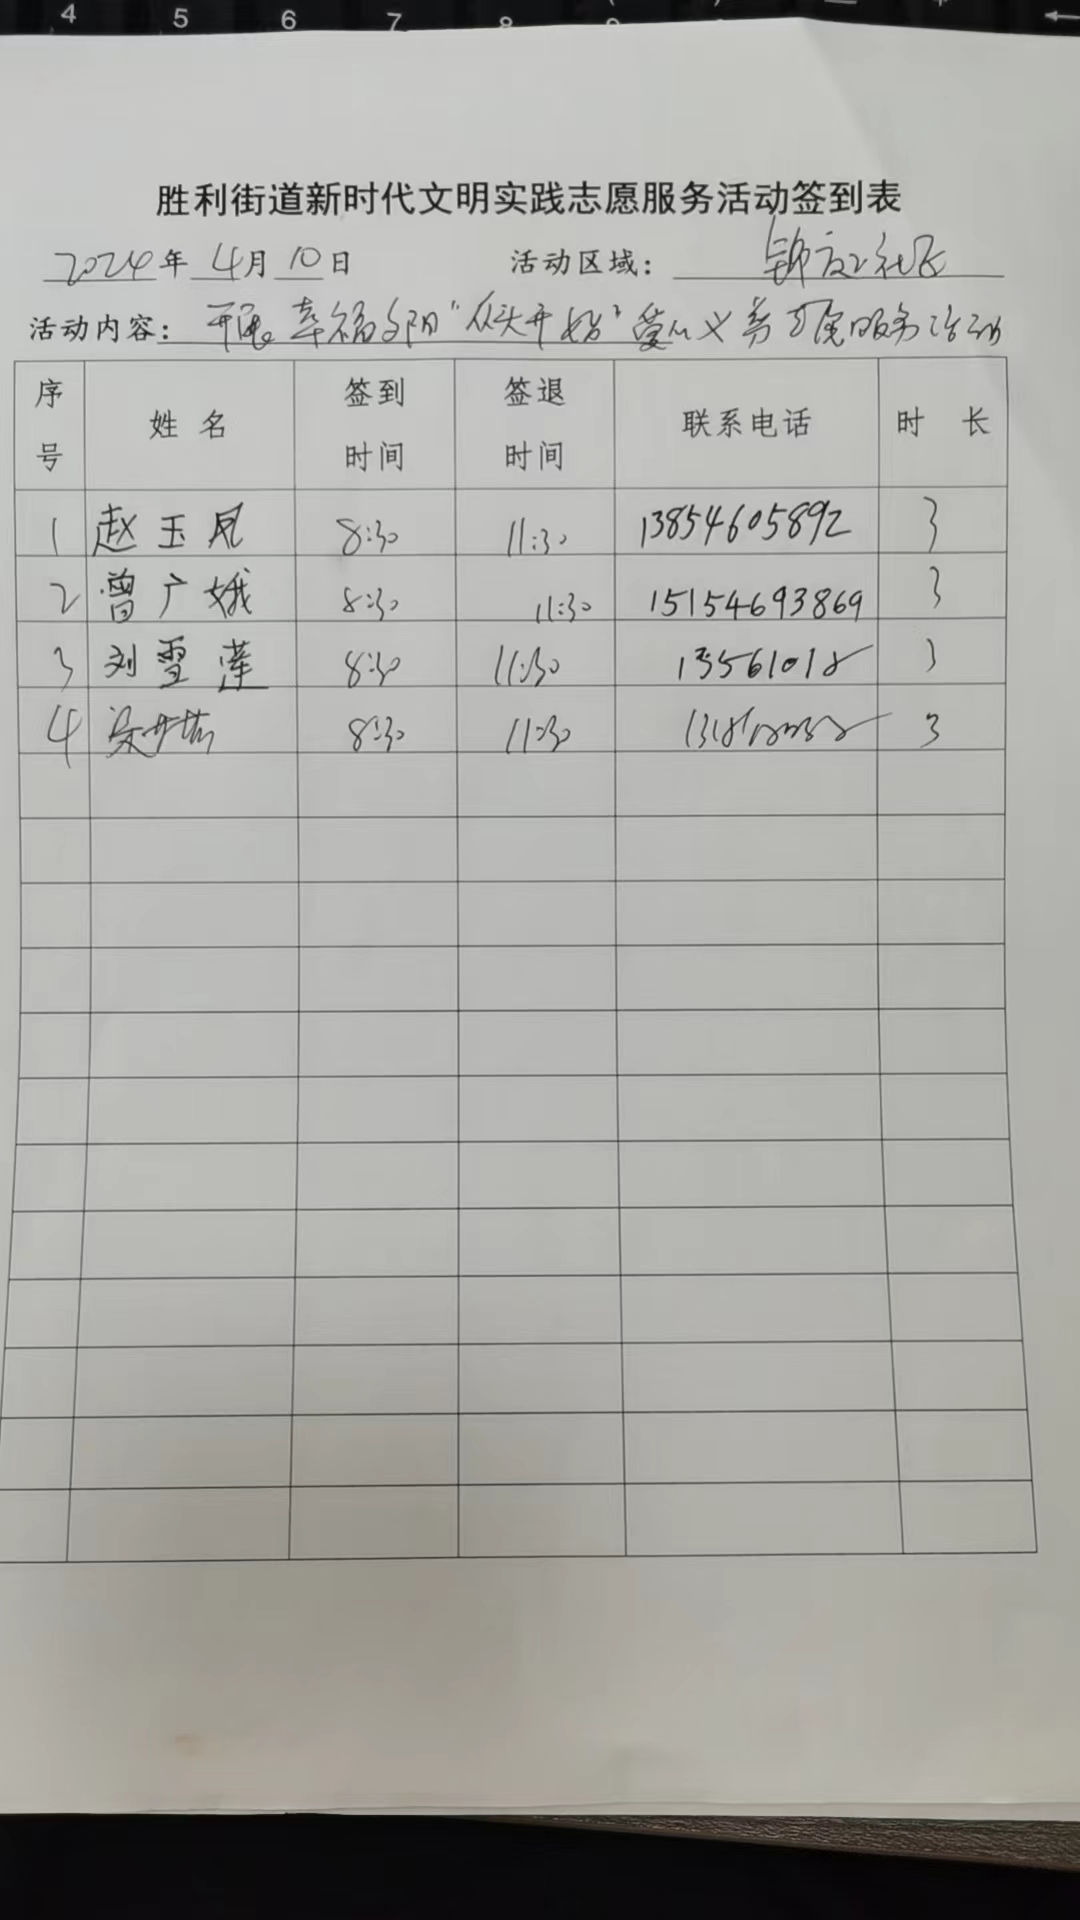 4 5 6 7 8
胜利街道新时代文明实践志愿服务活动签到表
2024年 4月 10日 活动区域: 社区
活动内容: 开展幸福夕阳“从头开始”爱心义剪志愿服务活动
序号 姓名 签到时间 签退时间 联系电话 时长
1 赵玉凤 8:30 11:30 13854605892 3
2 曾广娥 8:30 11:30 15154693869 3
3 刘雪莲 8:30 11:30 3
4 8:30 11:30 3